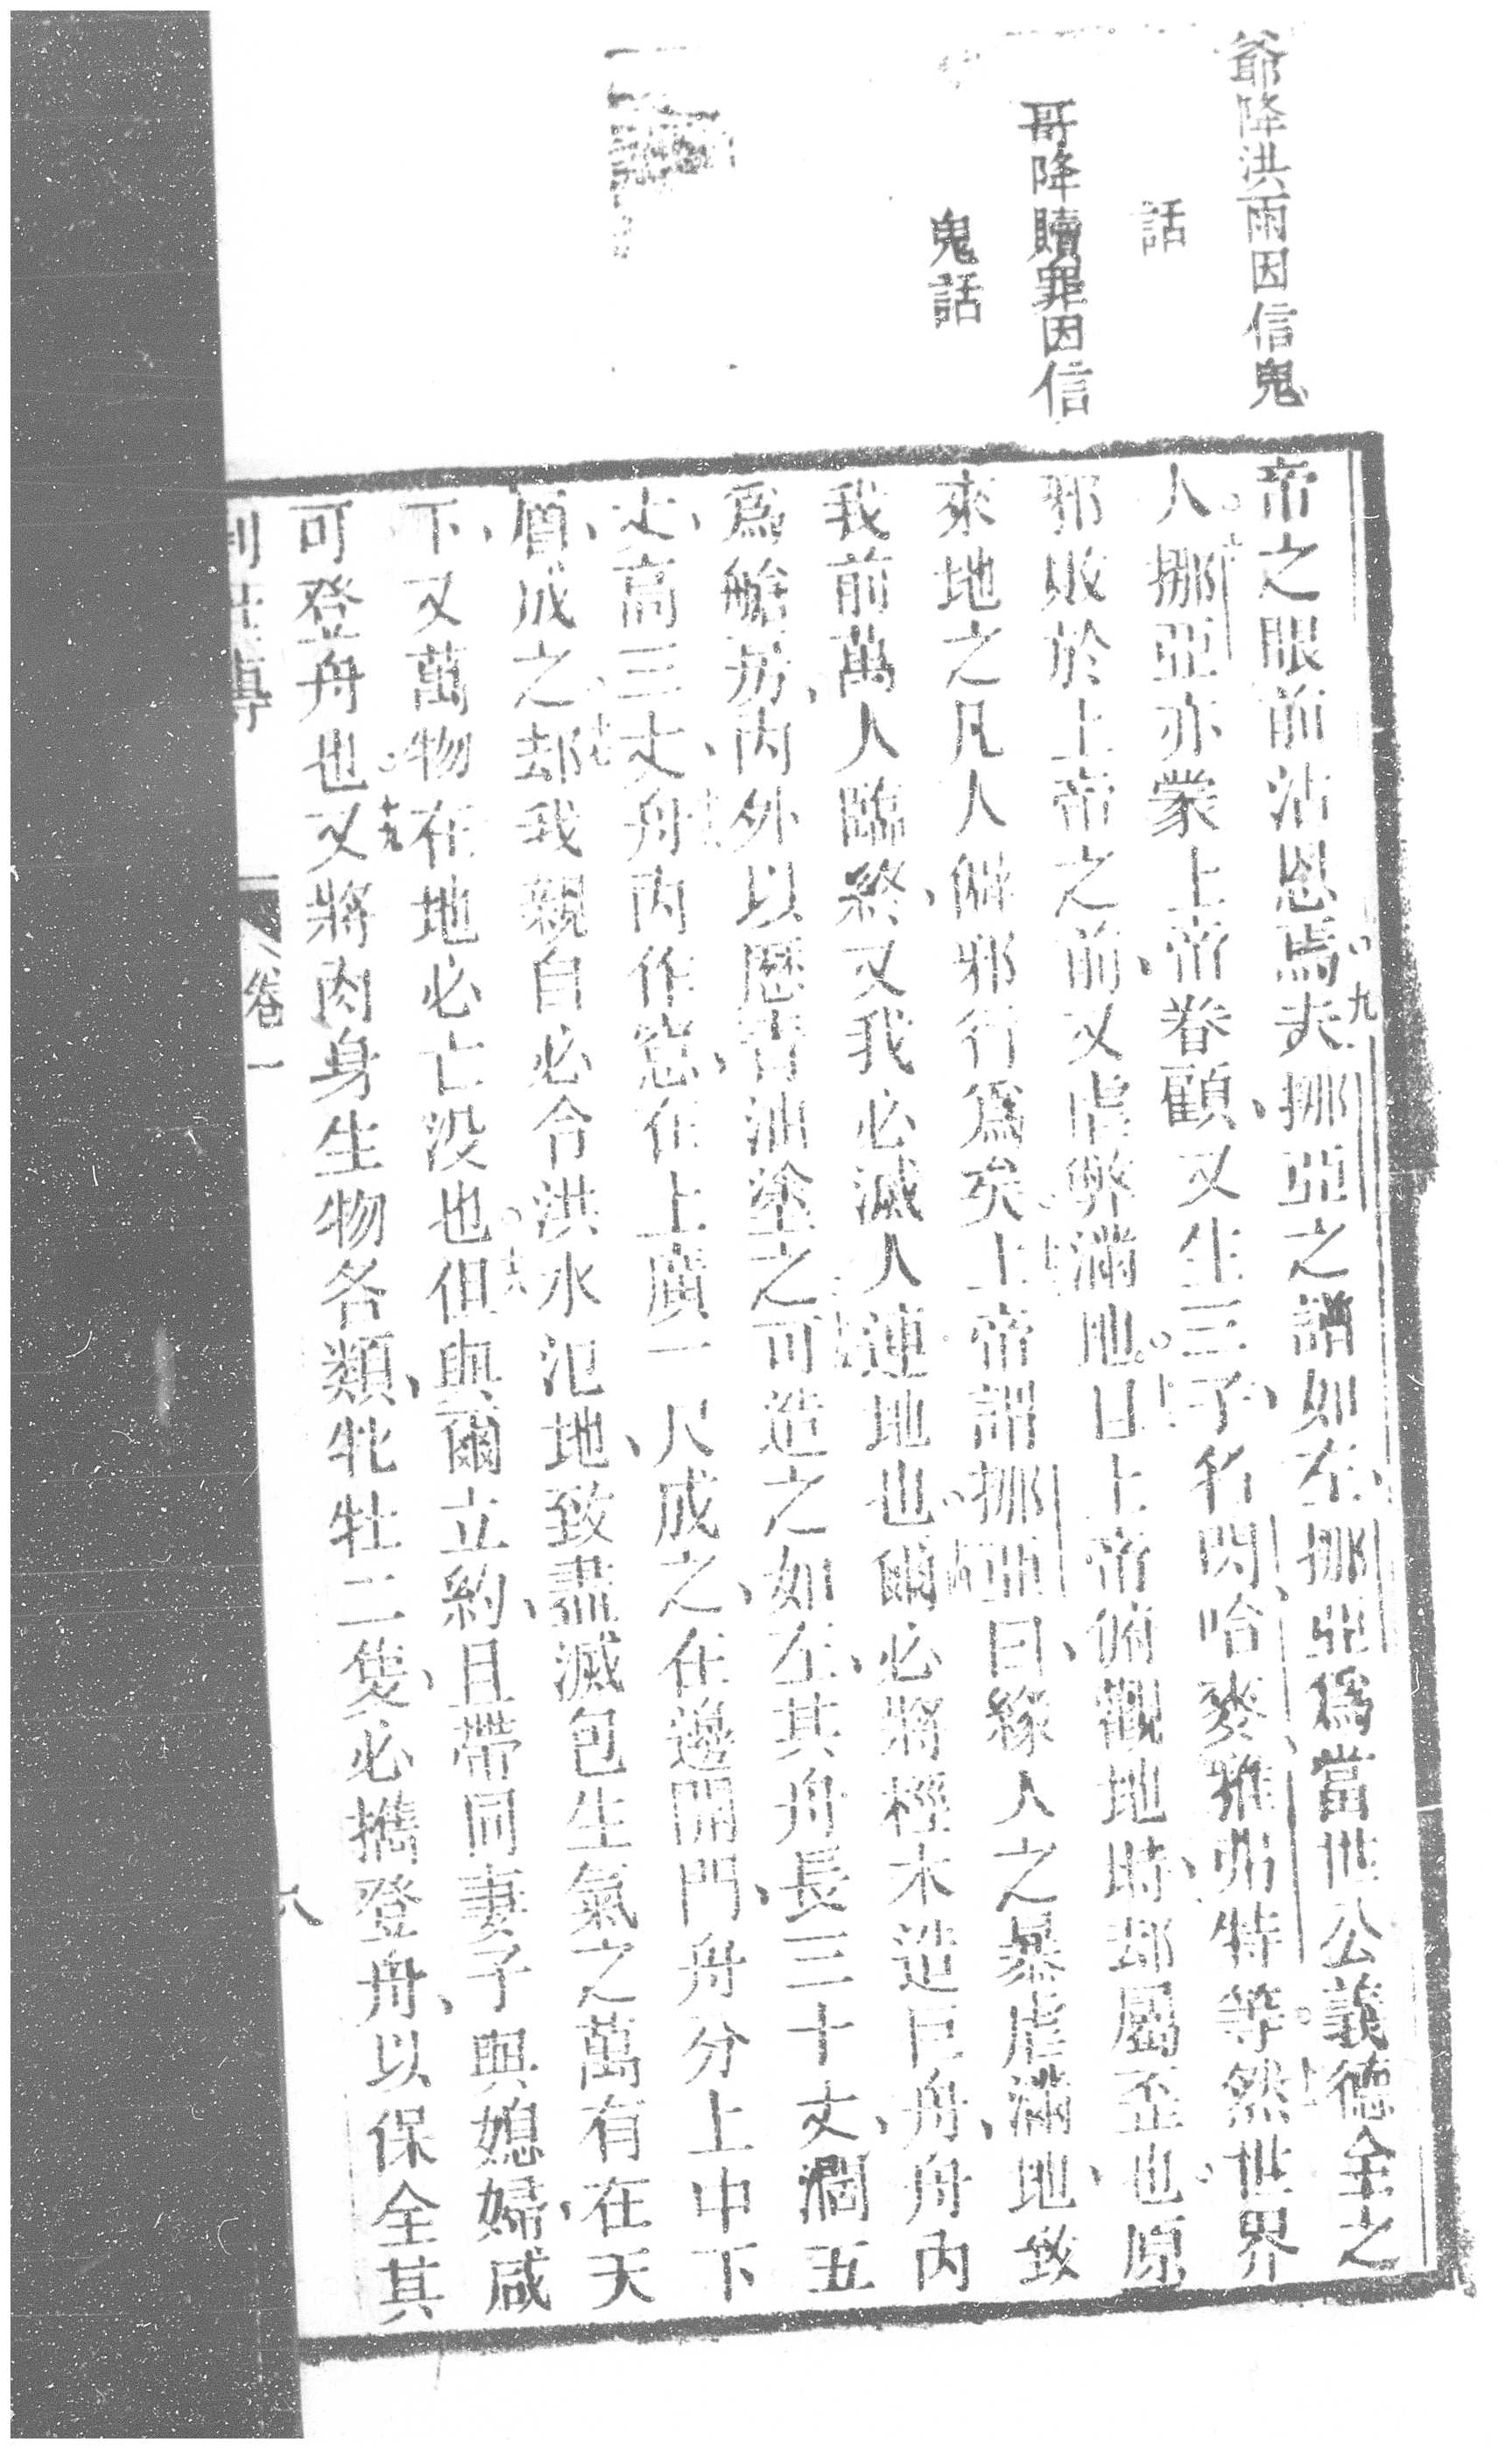 爺降洪雨因信鬼
話
哥降贖罪因信
鬼話
帝之眼前沾恩焉。九夫挪亞之譜如左、挪亞爲當世公義德全之
人。挪亞亦蒙上帝眷顧、又生三子、名閃、哈麥、雅弗特等。然世界
邪敗於上帝之前、又虐弊滿地。上帝俯觀地時、却屬歪也。原
來地之凡人僻邪行爲矣。上帝謂挪亞曰、緣人之暴虐滿地、致
我前萬人臨終、又我必滅人連地也。爾必將極木造巨舟、舟內
爲艙房、內外以瀝青油塗之。可造之如左、其舟長三十丈、濶五
丈、高三丈、舟內作窓、在上廣一尺成之、在邊開門、舟分上中下
層、成之。却我親自必令洪水氾地、致盡滅包生氣之萬有在天
下、又萬物在地必亡没也。但與爾立約、且帶同妻子與媳婦、咸
可登舟也。又將肉身生物各類、牝牡二隻、必携登舟、以保全其
卷一
六